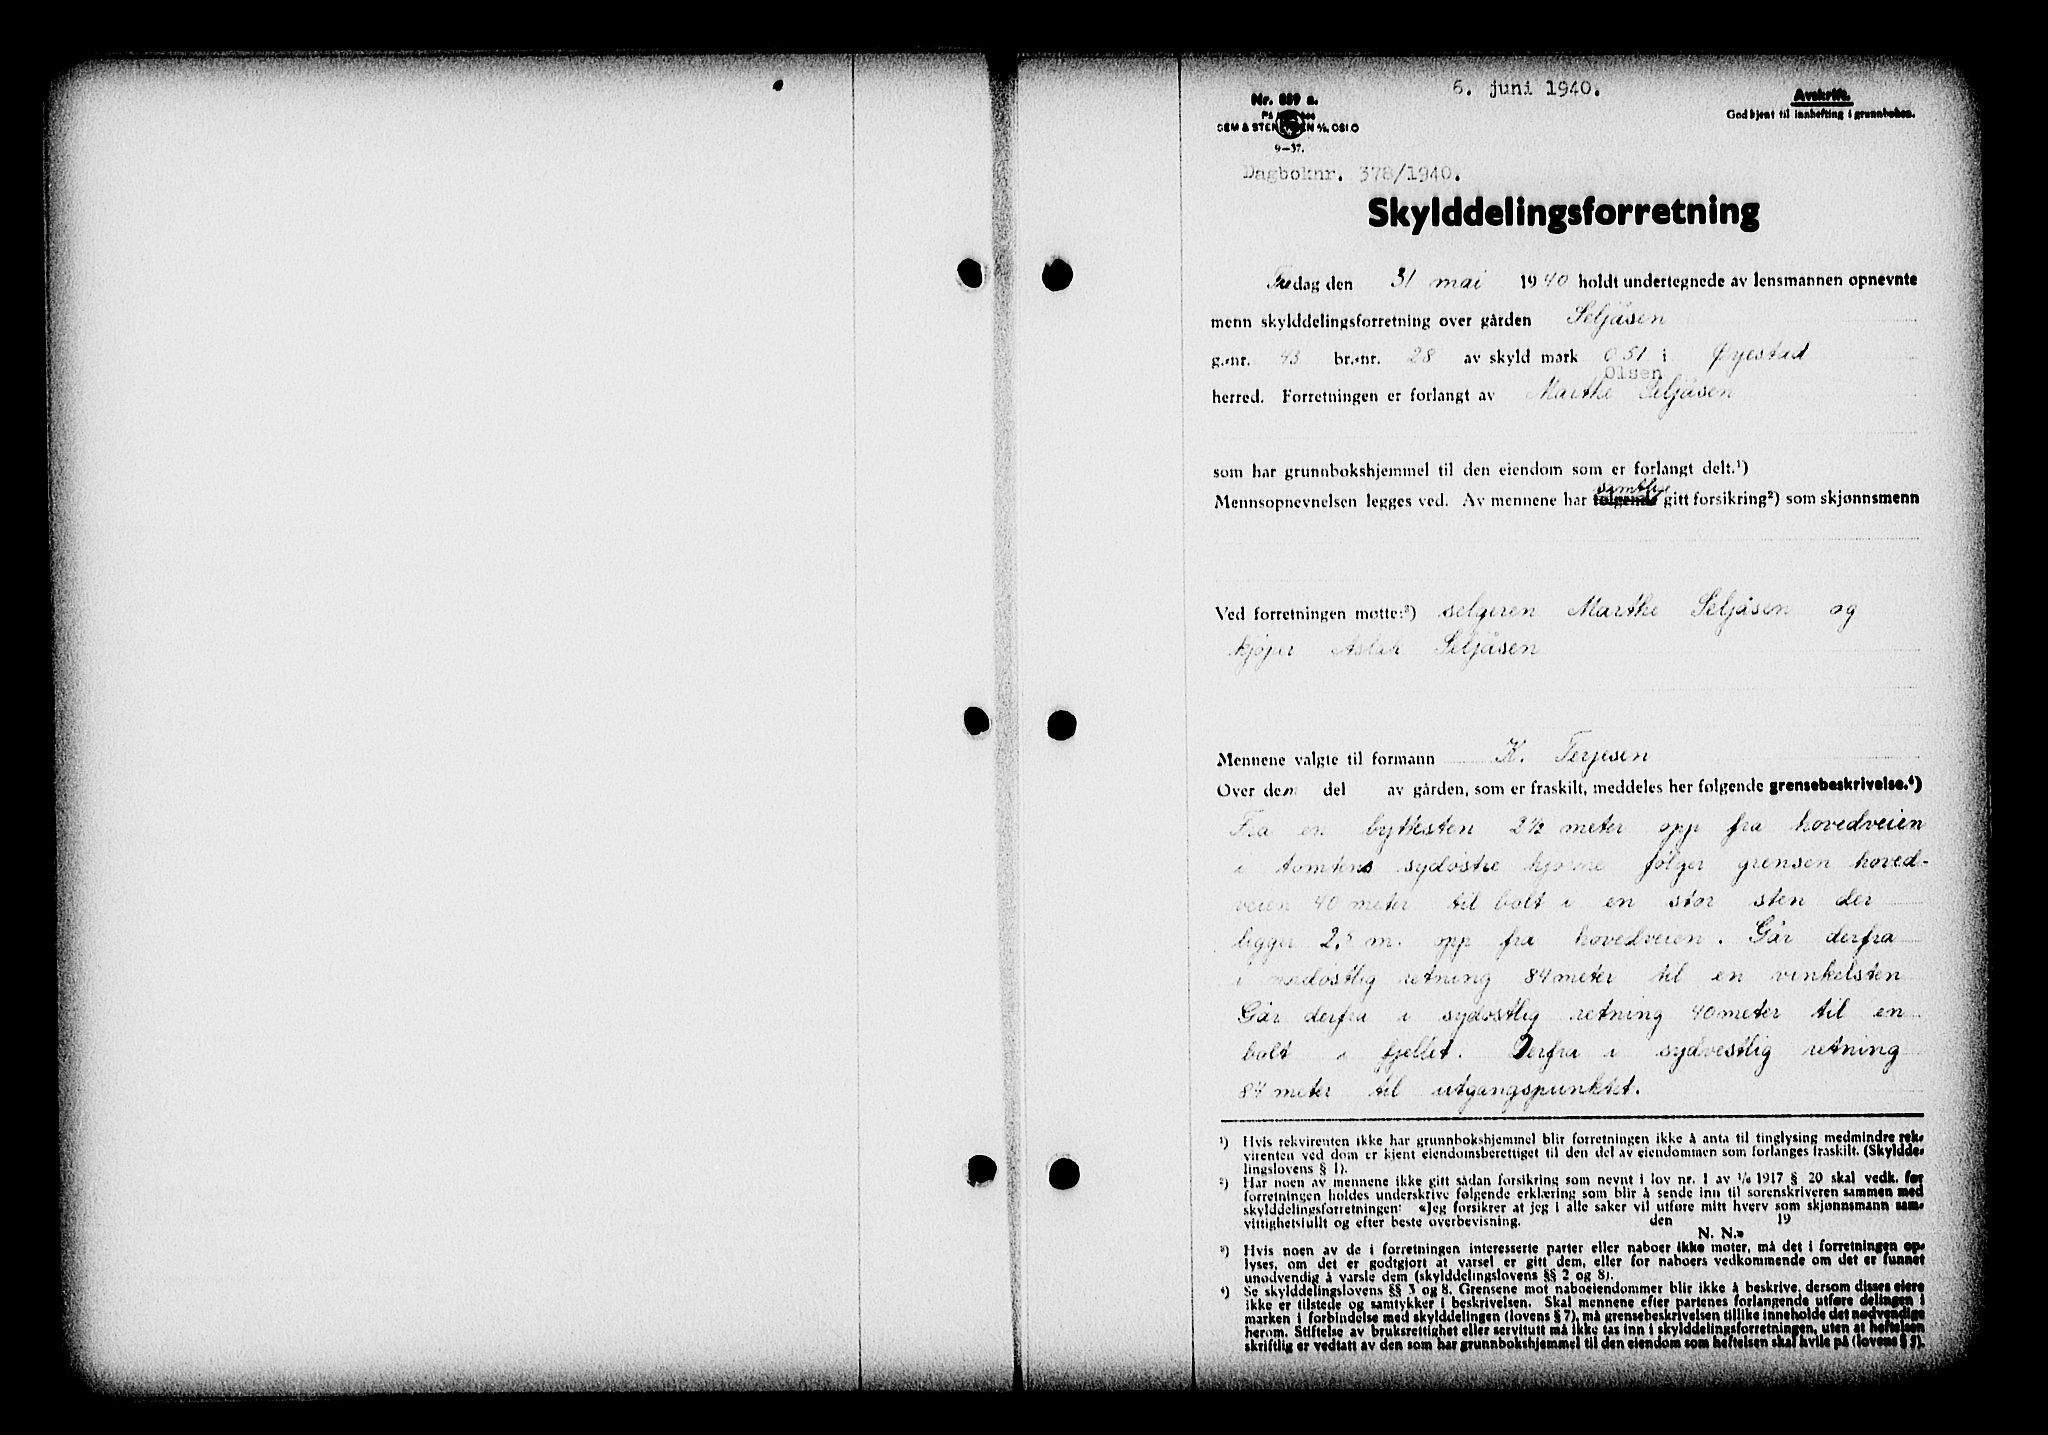 6. juni 1940.
Nr. 889 a.
Avskrift.
Godkjent til innhefting i grunnboken.
OSLO
9—37.
Dagboknr. 378/1940.
Skylddelingsforretning
Fredag den 31 mai 1940 holdt undertegnede av lensmannen opnevnte
menn skylddelingsforretning over gården Seljåsen
g.-nr. 43 br.-nr. 28 av skyld mark 0 51 i Øyestad
Olsen
herred. Forretningen er forlangt av Marthe Seljåsen
som har grunnbokshjemmel til den eiendom som er forlangt delt.¹)
samtlige
Mennsopnevnelsen legges ved. Av mennene har følgende gitt forsikring²) som skjønnsmenn
Ved forretningen møtte:³) selgeren Marthe Seljåsen og
kjøper Aslak Seljåsen
Mennene valgte til formann K. Terjesen
Over den del av gården, som er fraskilt, meddeles her følgende grensebeskrivelse.⁴)
Fra en byttesten 2½ meter opp fra hovedveien
i tomtens sydøstre hjørne følger grensen hoved-
veien 40 meter til bolt i en stor sten der
ligger 2,5 m. opp fra hovedveien. Går derfra
i nordøstlig retning 84 meter til en vinkelsten
Går derfra i sydøstlig retning 40 meter til en
bolt i fjellet. Derfra i sydvestlig retning
84 meter til utgangspunktet.
¹) Hvis rekvirenten ikke har grunnbokshjemmel blir forretningen ikke å anta til tinglysing medmindre rek-
virenten ved dom er kjent eiendomsberettiget til den del av eiendommen som forlanges fraskilt. (Skyldde-
lingslovens § 1).
²) Har noen av mennene ikke gitt sådan forsikring som nevnt i lov nr. 1 av 1/6 1917 § 20 skal vedk. før
forretningen holdes underskrive følgende erklæring som blir å sende inn til sorenskriveren sammen med
skylddelingsforretningen: «Jeg forsikrer at jeg i alle saker vil utføre mitt hverv som skjønnsmann sam-
vittighetsfullt og efter beste overbevisning. den 19
N. N.»
³) Hvis noen av de i forretningen interesserte parter eller naboer ikke møter, må det i forretningen op-
lyses, om det er godtgjort at varsel er gitt dem, eller for naboers vedkommende om det er funnet
unødvendig å varsle dem (skylddelingslovens §§ 2 og 8).
⁴) Se skylddelingslovens §§ 3 og 8. Grensene mot naboeiendommer blir ikke å beskrive, dersom disses eiere
ikke er tilstede og samtykker i beskrivelsen. Skal mennene efter partenes forlangende utføre delingen i
marken i forbindelse med skylddelingen (lovens § 7), må grensebeskrivelsen tillike inneholde det nødvendige
herom. Stiftelse av bruksrettighet eller servitutt må ikke tas inn i skylddelingsforretningen, uten at heftelsen
skriftlig er vedtatt av den som har grunnbokshjemmel til den eiendom som heftelsen skal hvile på (lovens § 5).